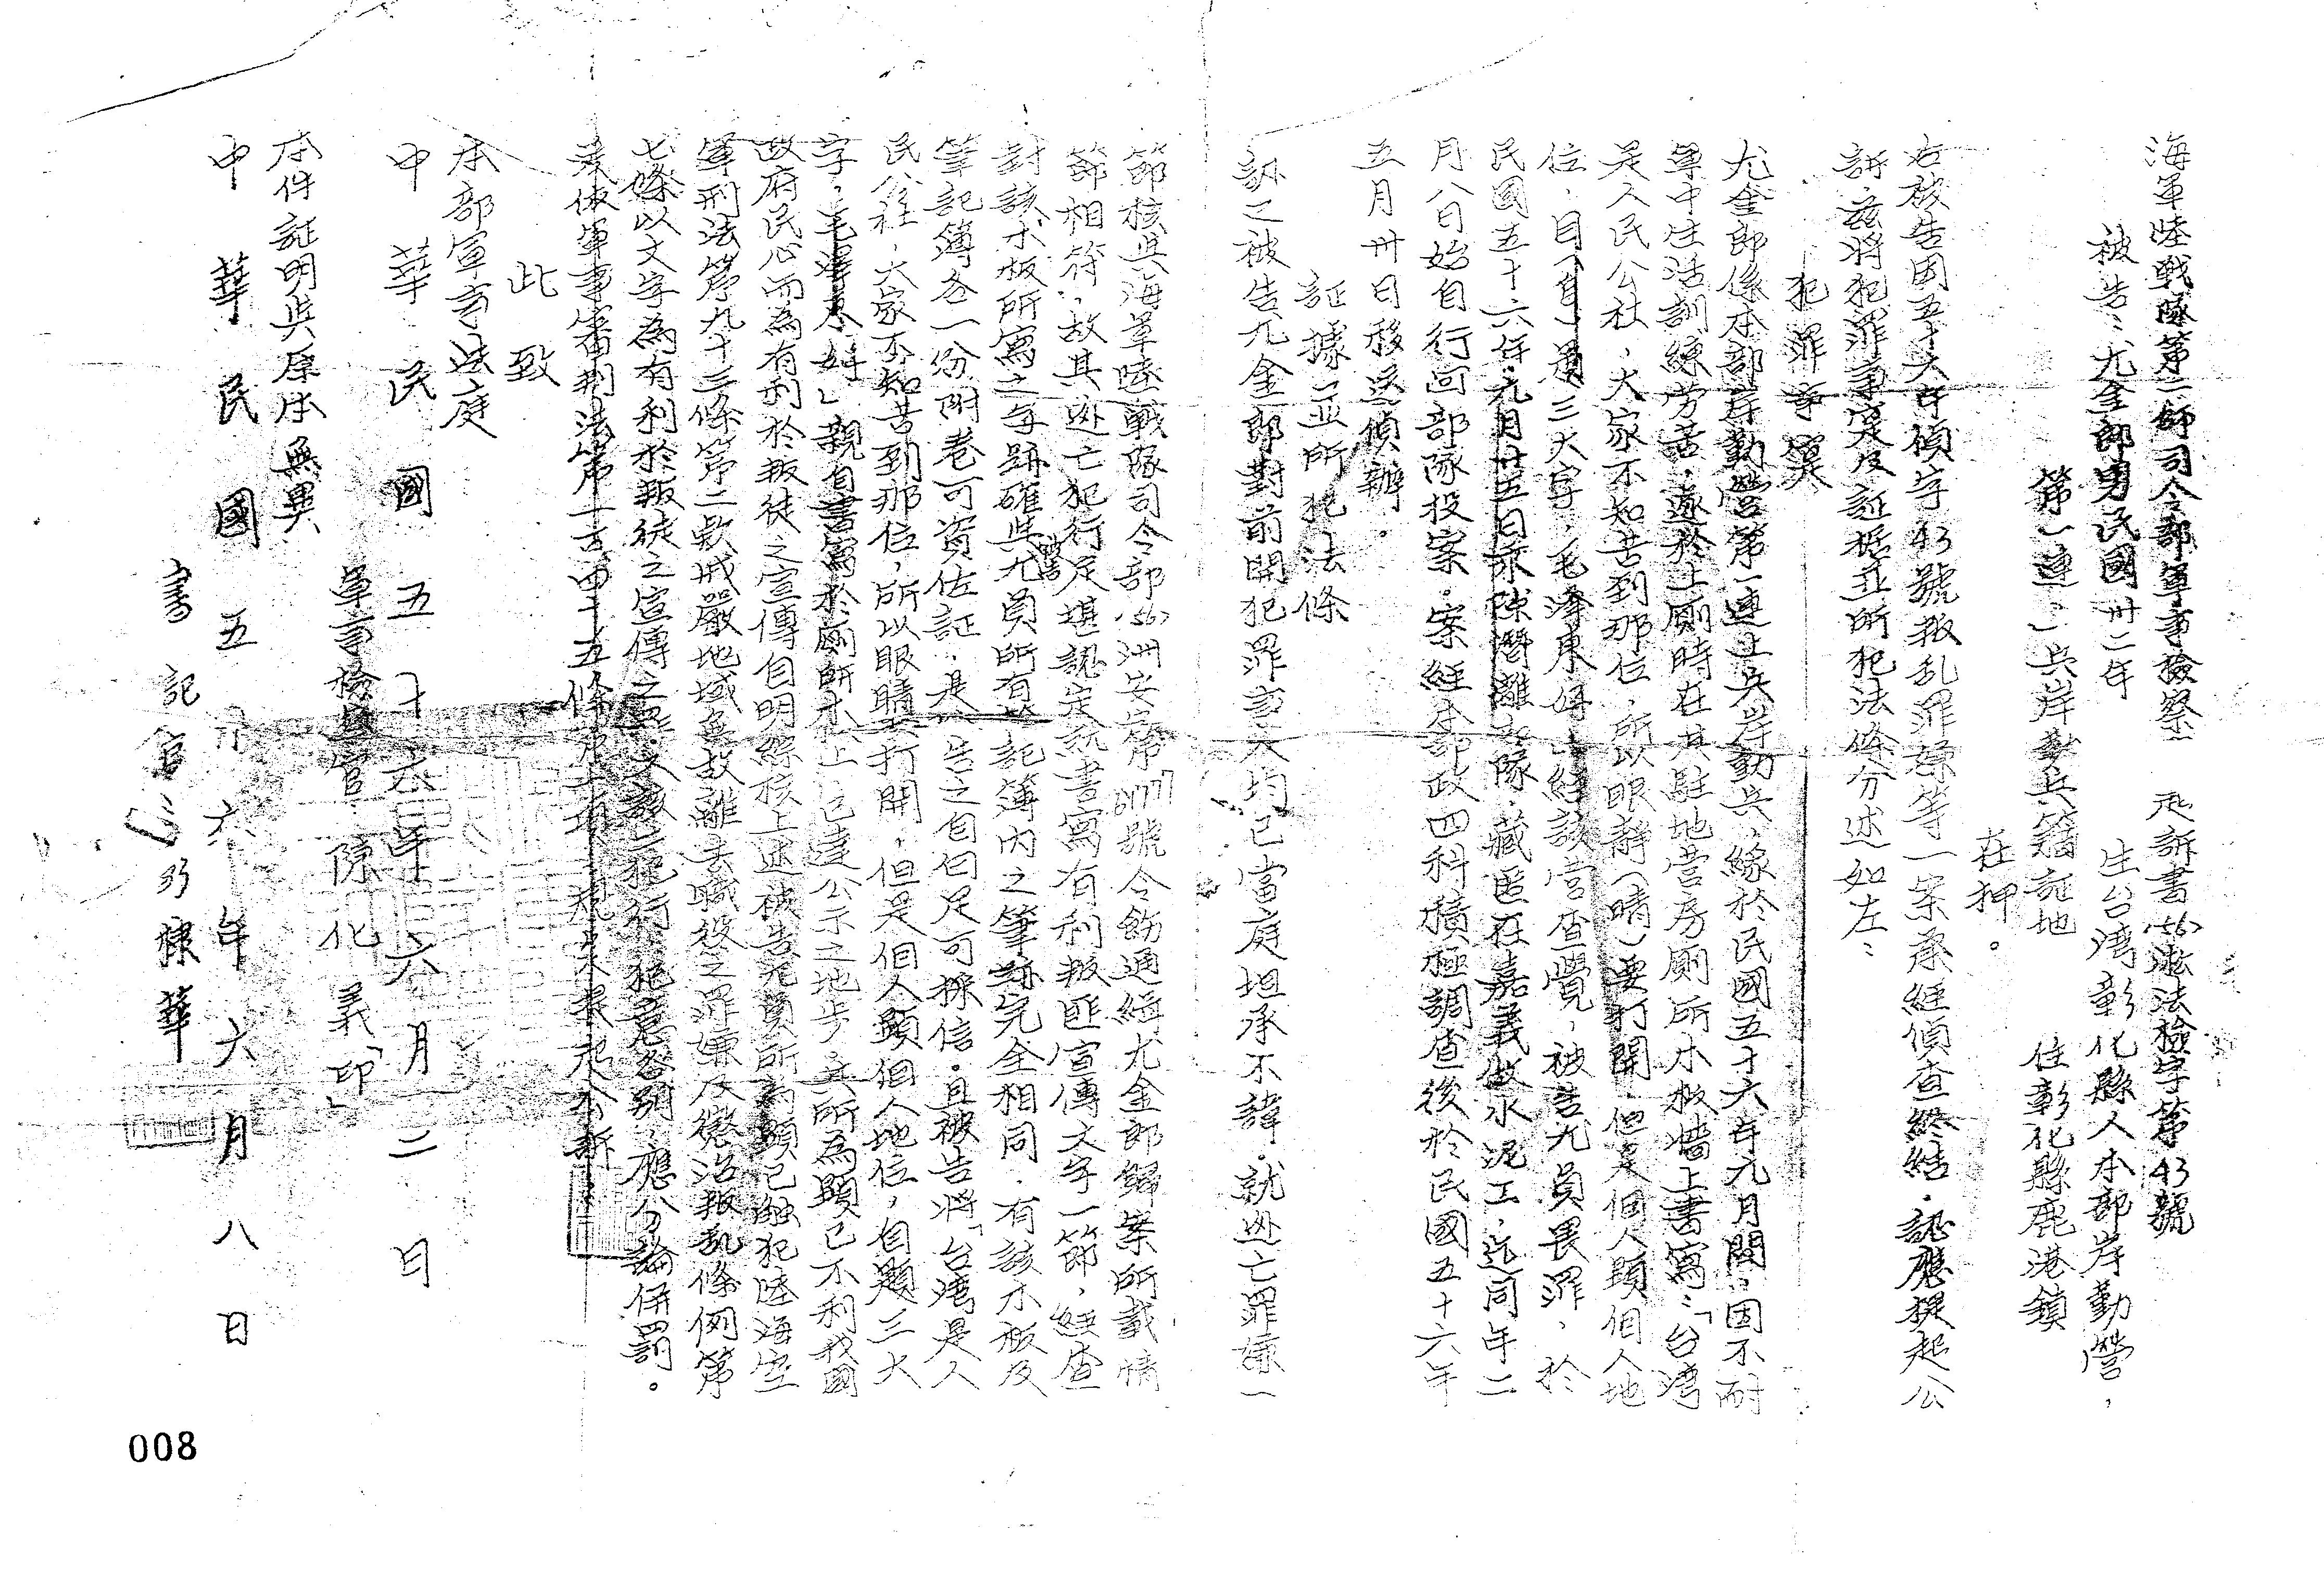 海軍陸戰隊第二師司令部軍事檢察 起訴書(56)法檢字第43號
被告：尤金郎男民國卅二年 生台湾彰化縣人本部岸勤營，
第一連二兵岸勤兵籍証地 住彰化縣鹿港鎮
在押。
右被告因五十六年偵字43號叛乱罪嫌等一案承經偵查終結．認應提起公
訴，茲將犯罪事實及証據並所犯法條分述如左：
犯罪事實
尤金郎係本部岸勤營第一連上兵岸勤兵，緣於民國五十六年元月間，因不耐
軍中生活訓練劳苦，遂於上厠時在其駐地营房厠所木板墙上書寫：「台湾
是人民公社，大家不知苦到那位，所以眼静(睛)要打開，但是個人顕個人地
位，目(自)題三大字，毛澤東好」經該营查覺，被告尤員畏罪，於
民國五十六年元月廿五日乘隙潛離部隊，藏匿在嘉義做水泥工，迄同年二
月八日始自行回部隊投案．案經本部政四科積極調查後於民國五十六年
五月卅日移送偵辦．
証據並所犯法條
訊之被告尤金郎對前開犯罪事实均已當庭坦承不諱．就逃亡罪嫌一
節核與海軍陸戰隊司令部(56)洲安字第 號令飭通緝尤金郎歸案所載情
節相符，故其逃亡犯行足堪認定 書寫有利叛匪宣傳文字一節，經查
對該木板所寫之字跡確與尤員所有筆記簿內之筆跡完全相同．有該木板及
筆記簿各一份附卷可資佐証，是 告之自白足可採信．且被告將「台湾是人
民公社，大家不知苦到那位，所以眼睛要打開，但是個人顕個人地位，自題三大
字，毛澤東好」親自書寫於厠所木 上已達公示之地步其所為顕已不利我國
政府民心而為有利於叛徒之宣傳自明綜核上述被告尤員所為顕已触犯陸海空
軍刑法第九十三條第二款戒嚴地域無故離去職役之罪嫌及懲治叛乱條例第
七條以文字為有利於叛徒之宣傳之罪，又該二犯行，犯意各別，應分論併罰。
爰依軍事審判法第一百四十五條第 提起公訴
此致
本部軍事法庭
中華民國五十六年六月二日
軍事檢察官 陳化義「印」
本件証明與原本無異
中華民國五十六年六月八日
書記官 棣華
008